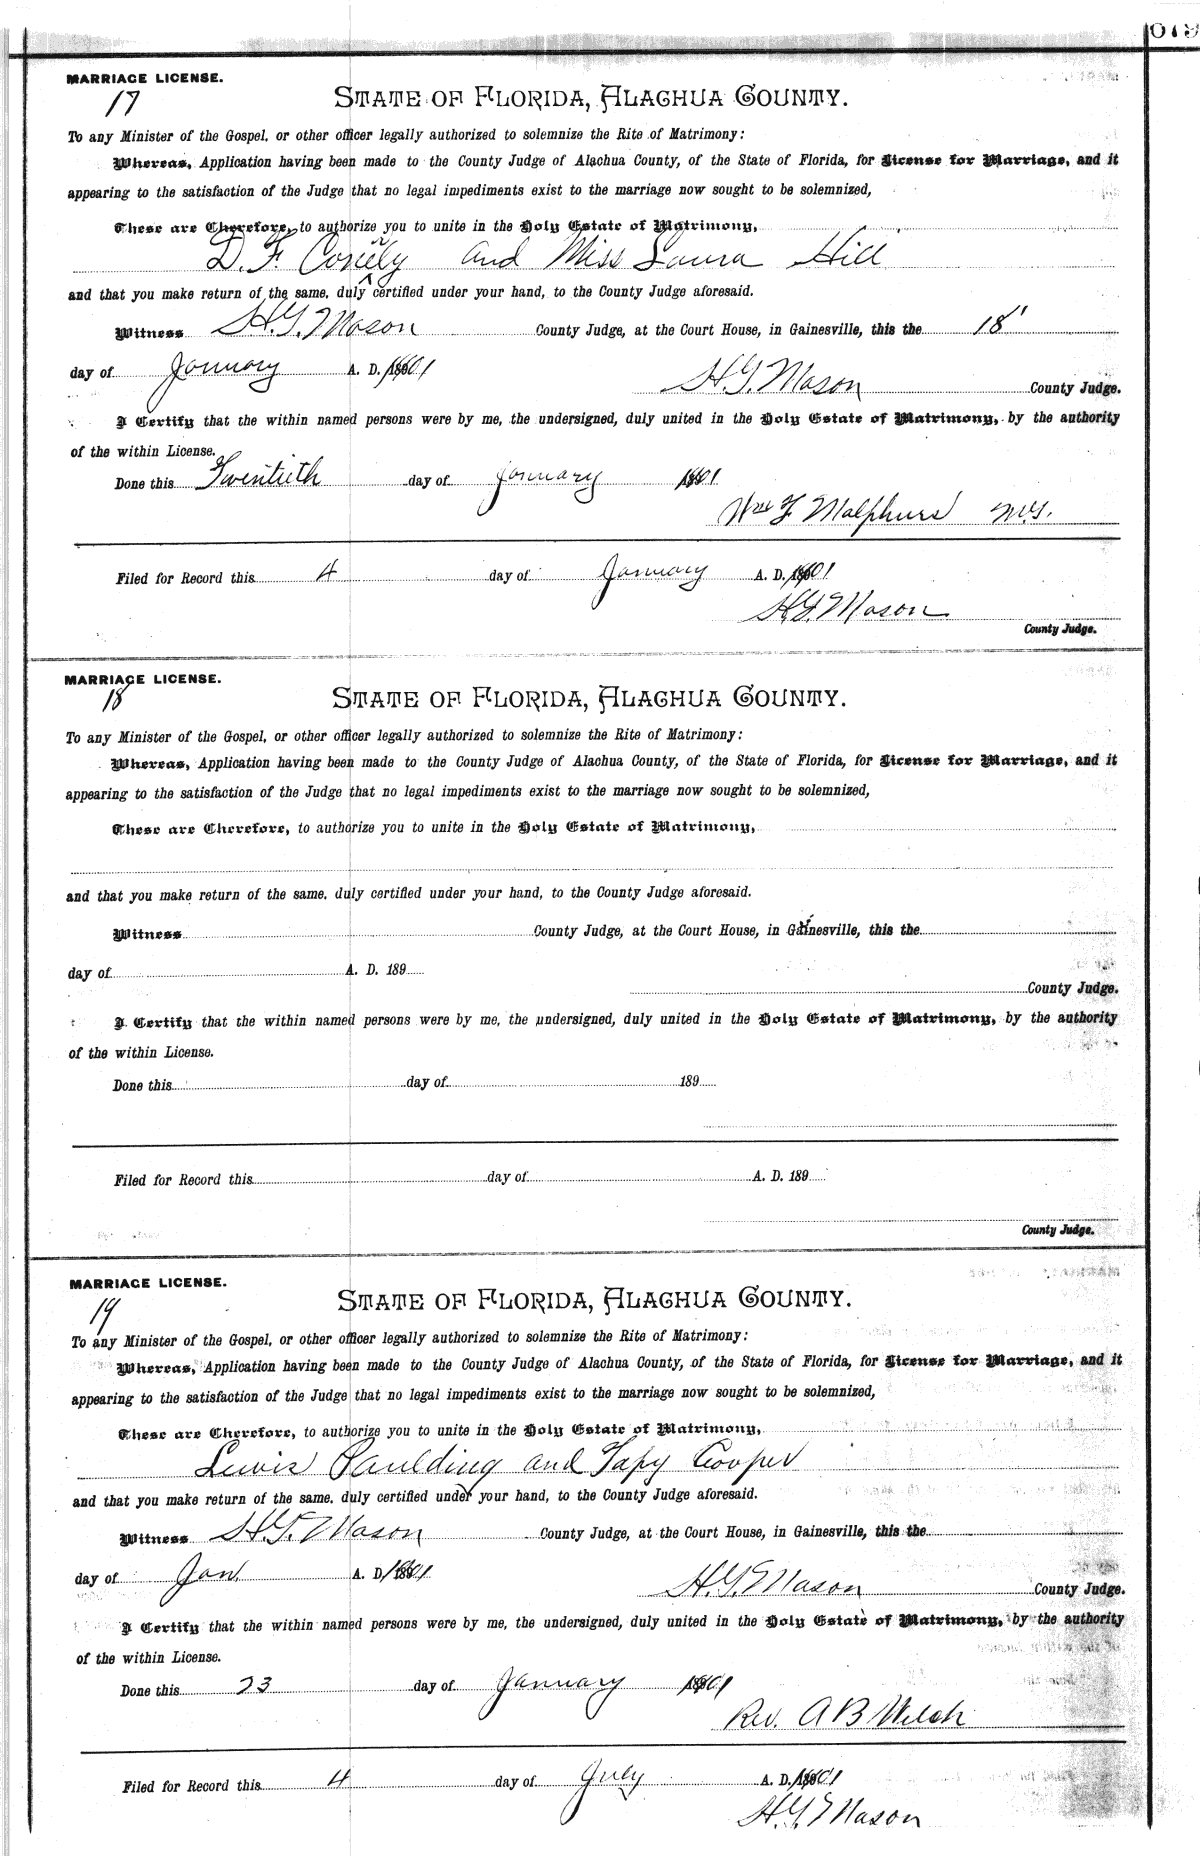 679
MARRIAGE LICENSE.
17
STATE OF FLORIDA, ALACHUA COUNTY.
To any Minister of the Gospel, or other officer legally authorized to solemnize the Rite of Matrimony:
Whereas, Application having been made to the County Judge of Alachua County, of the State of Florida, for License for Marriage, and it
appearing to the satisfaction of the Judge that no legal impediments exist to the marriage now sought to be solemnized,
These are Therefore, to authorize you to unite in the Holy Estate of Matrimony,
D. F. and Miss Laura Hill
and that you make return of the same, duly certified under your hand, to the County Judge aforesaid.
Witness H. G. Mason County Judge, at the Court House, in Gainesville, this the 18
day of January A. D. 1901 H. G. Mason County Judge.
I Certify that the within named persons were by me, the undersigned, duly united in the Holy Estate of Matrimony, by the authority
of the within License.
Done this Twentieth day of January 1901
Wm F Malphurs
Filed for Record this 4 day of January A. D. 1901
H. G. Mason
County Judge.
MARRIAGE LICENSE.
18
STATE OF FLORIDA, ALACHUA COUNTY.
To any Minister of the Gospel, or other officer legally authorized to solemnize the Rite of Matrimony:
Whereas, Application having been made to the County Judge of Alachua County, of the State of Florida, for License for Marriage, and it
appearing to the satisfaction of the Judge that no legal impediments exist to the marriage now sought to be solemnized,
These are Therefore, to authorize you to unite in the Holy Estate of Matrimony,
and that you make return of the same, duly certified under your hand, to the County Judge aforesaid.
Witness County Judge, at the Court House, in Gainesville, this the
day of A. D. 189
County Judge.
I Certify that the within named persons were by me, the undersigned, duly united in the Holy Estate of Matrimony, by the authority
of the within License.
Done this day of 189
Filed for Record this day of A. D. 189
County Judge.
MARRIAGE LICENSE.
19
STATE OF FLORIDA, ALACHUA COUNTY.
To any Minister of the Gospel, or other officer legally authorized to solemnize the Rite of Matrimony:
Whereas, Application having been made to the County Judge of Alachua County, of the State of Florida, for License for Marriage, and it
appearing to the satisfaction of the Judge that no legal impediments exist to the marriage now sought to be solemnized,
These are Therefore, to authorize you to unite in the Holy Estate of Matrimony,
Lewis Paulding and Tapy Cooper
and that you make return of the same, duly certified under your hand, to the County Judge aforesaid.
Witness H. G. Mason County Judge, at the Court House, in Gainesville, this the
day of Jan. A. D. 1901 H. G. Mason County Judge.
I Certify that the within named persons were by me, the undersigned, duly united in the Holy Estate of Matrimony, by the authority
of the within License.
Done this 23 day of January 1901
Rev. A B Welch
Filed for Record this 4 day of July A. D. 1901
H. G. Mason